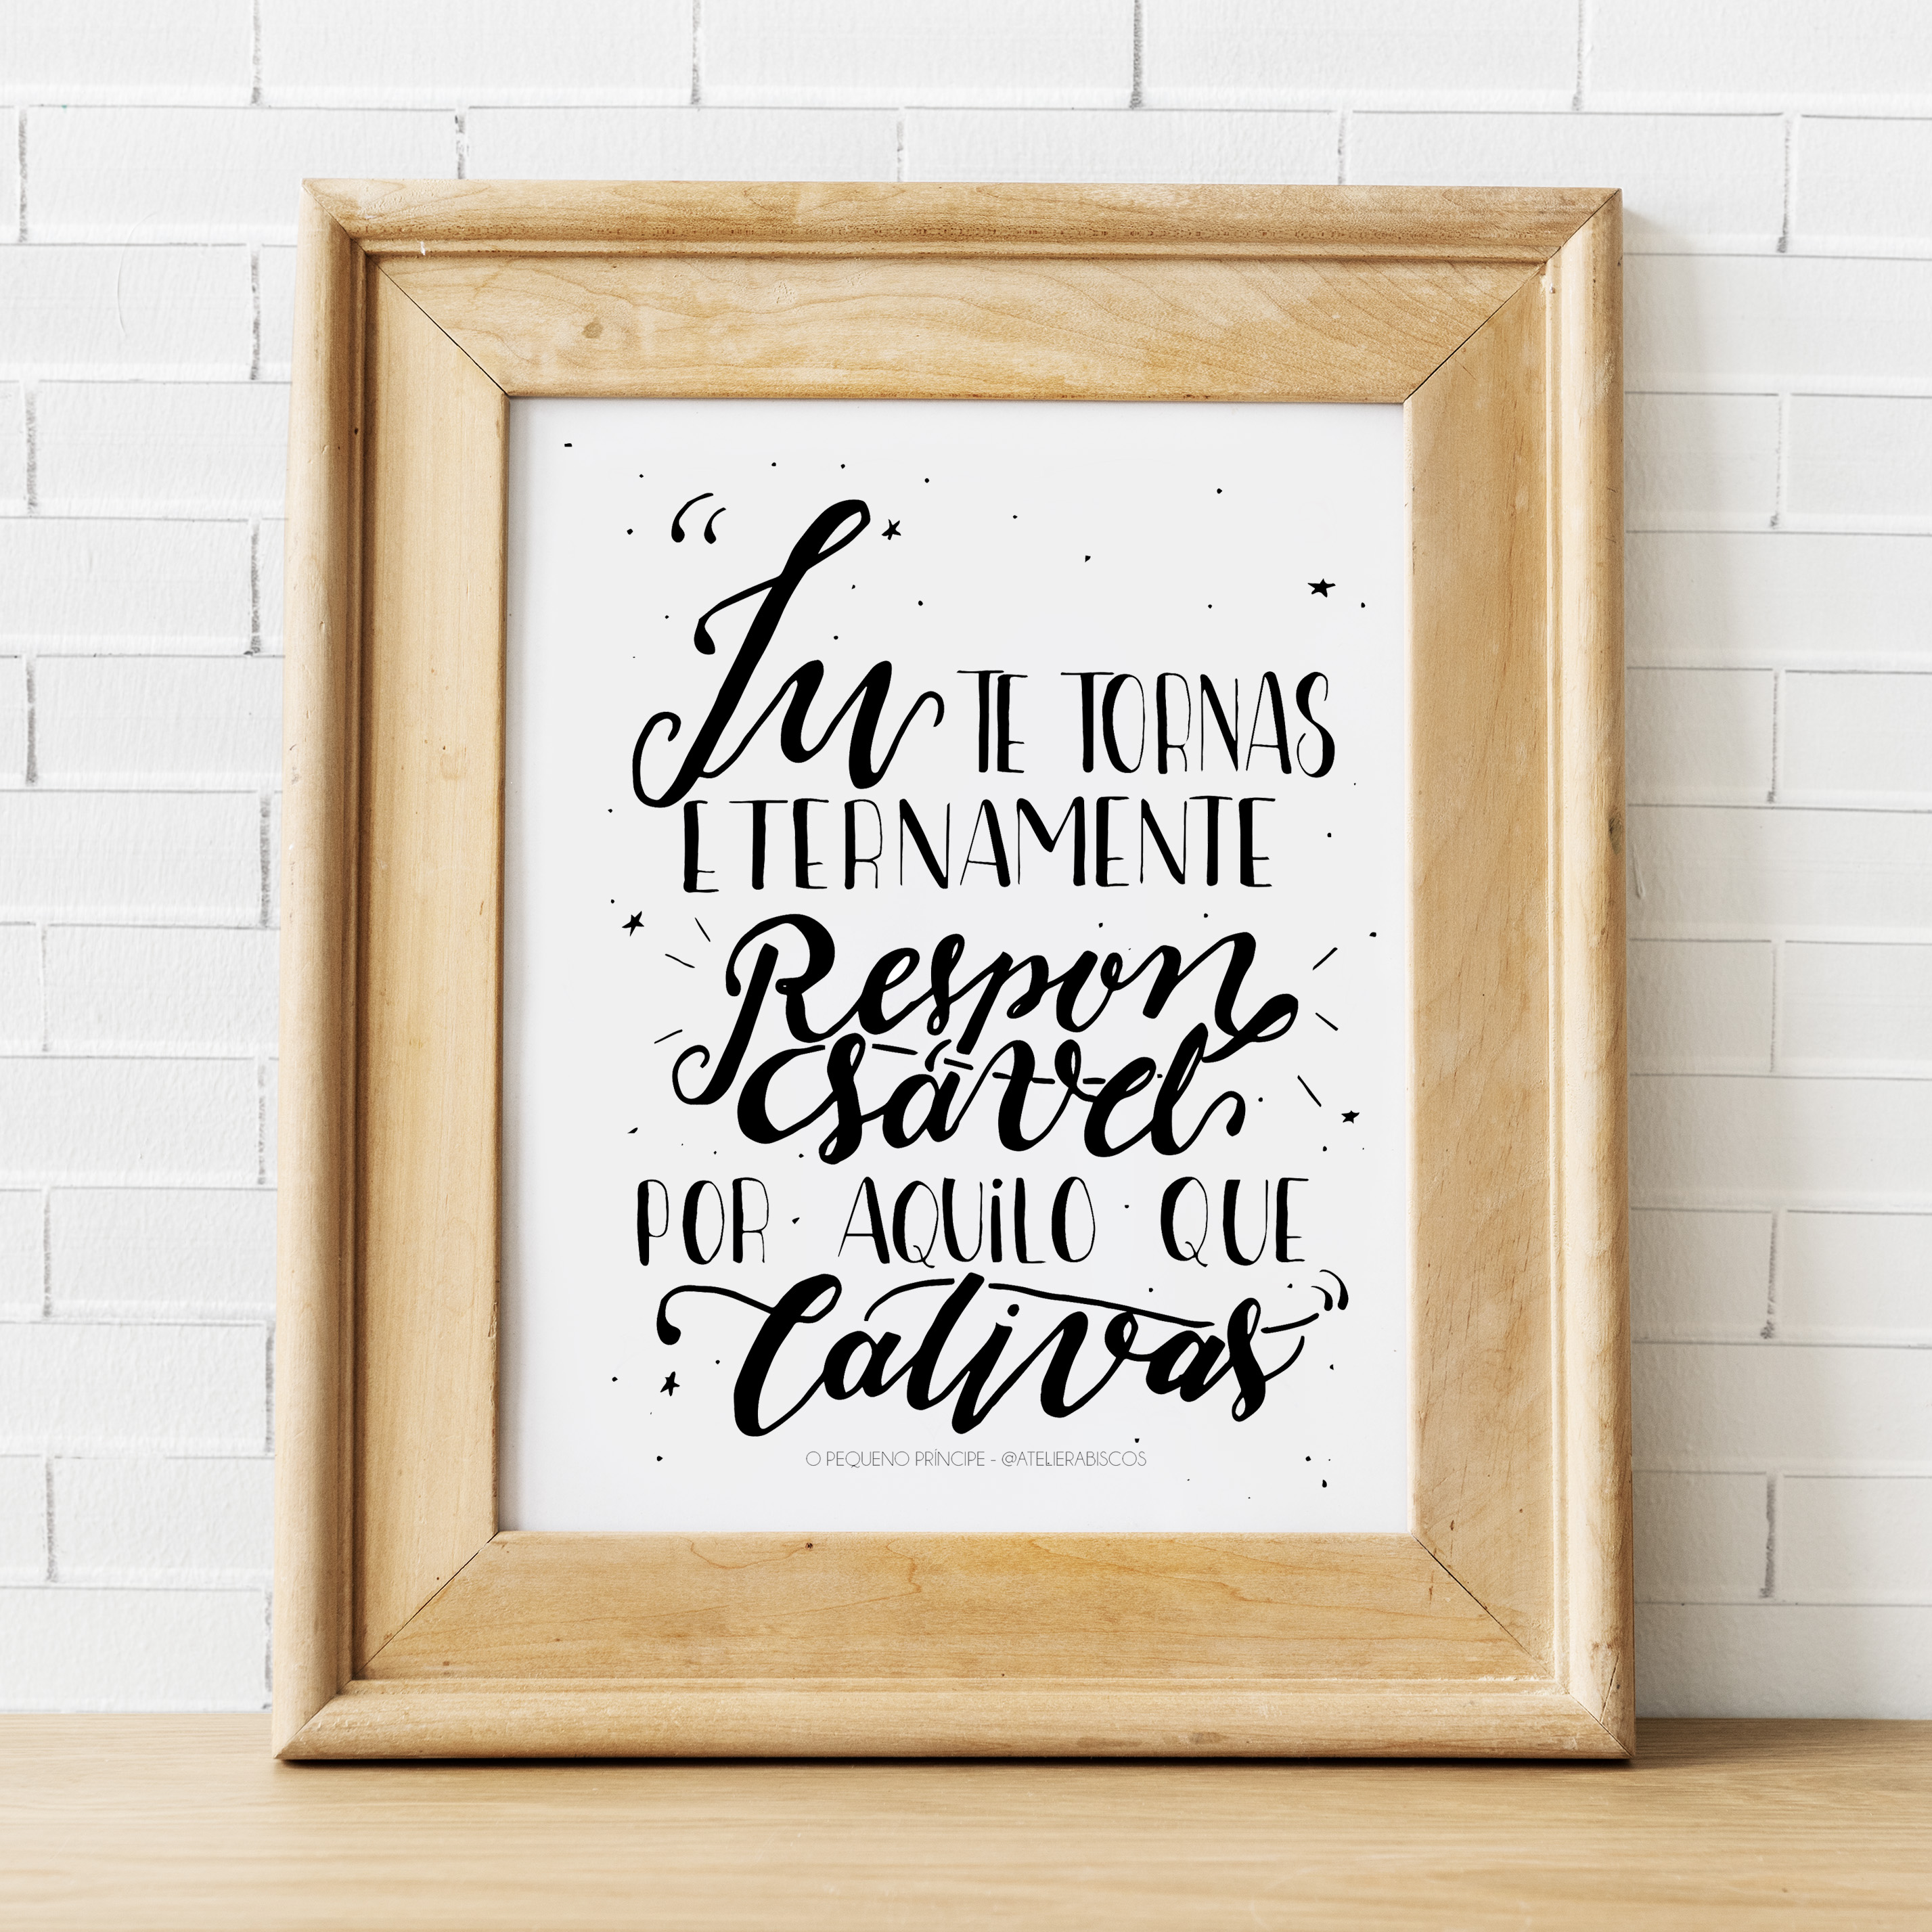 “Tu TE TORNAS
ETERNAMENTE
Respon
sável
POR AQUiLO QUE
Cativas”
O PEQUENO PRÍNCIPE - @ATELIERABISCOS